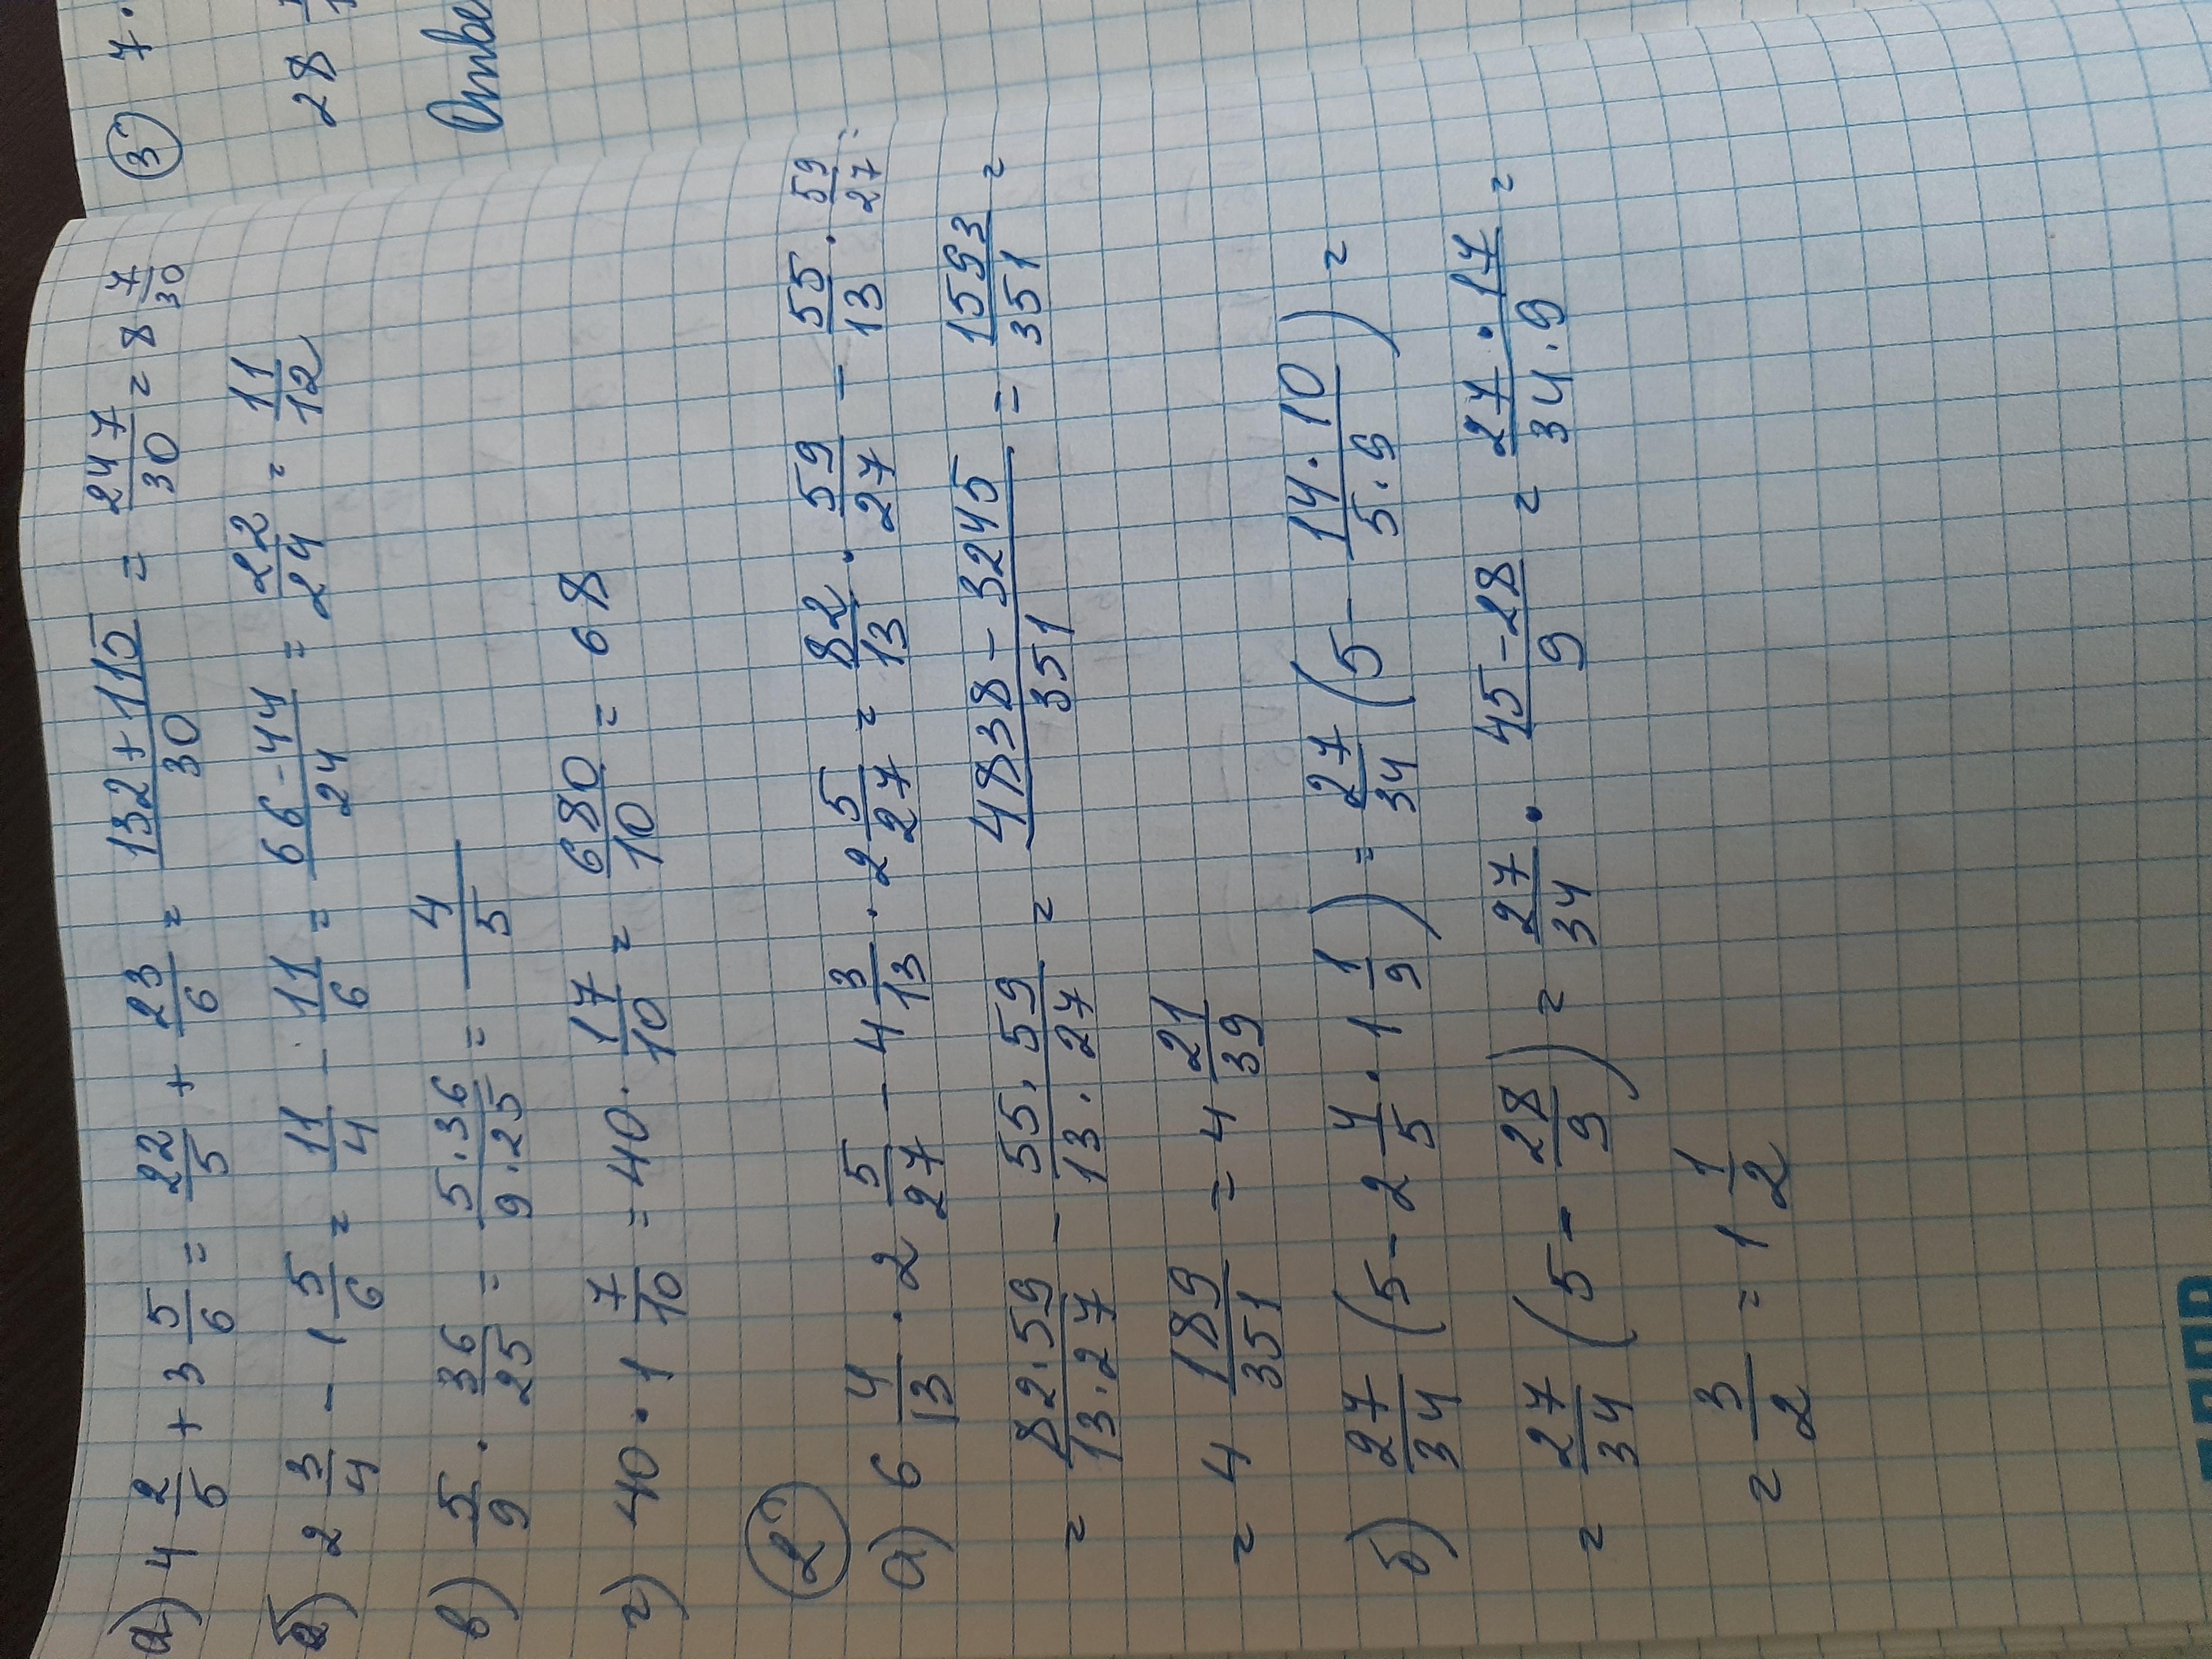 а) 4 2/5 + 3 5/6 = 22/5 + 23/6 = (132 + 115)/30 = 247/30 = 8 7/30
б) 2 3/4 - 1 5/6 = 11/4 - 11/6 = (66 - 44)/24 = 22/24 = 11/12
в) 5/9 · 36/25 = (5 · 36)/(9 · 25) = 4/5
г) 40 · 1 7/10 = 40 · 17/10 = 680/10 = 68
2
а) 6 4/13 · 2 5/27 - 4 3/13 · 2 5/27 = 82/13 · 59/27 - 55/13 · 59/27 =
= (82 · 59)/(13 · 27) - (55 · 59)/(13 · 27) = (4838 - 3245)/351 = 1593/351 =
= 4 189/351 = 4 21/39
б) 27/34 (5 - 2 4/5 · 1 1/9) = 27/34 (5 - (14 · 10)/(5 · 9)) =
= 27/34 (5 - 28/9) = 27/34 · (45 - 28)/9 = (27 · 17)/(34 · 9) =
= 3/2 = 1 1/2
3 7.
28